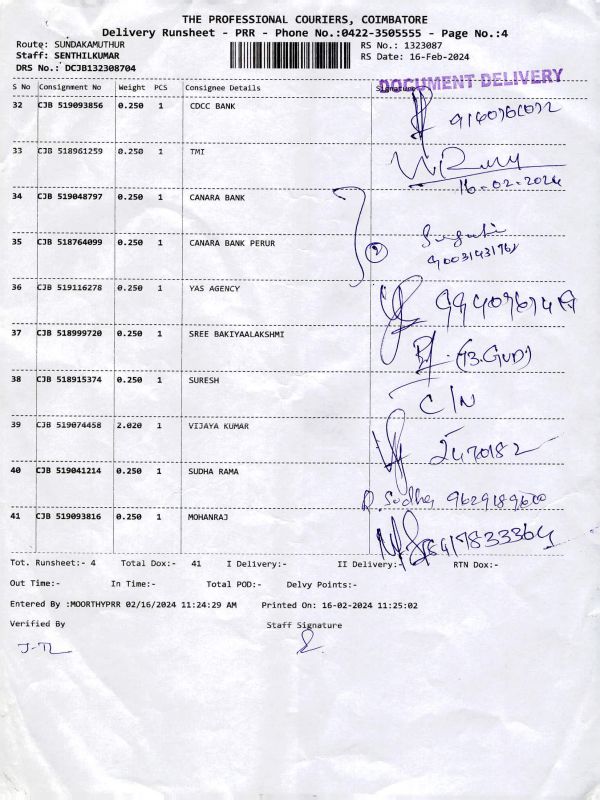 THE PROFESSIONAL COURIERS, COIMBATORE
Delivery Runsheet - PRR - Phone No.:0422-3505555 - Page No.:4
Route: SUNDAKAMUTHUR RS No.: 1323087
Staff: SENTHILKUMAR RS Date: 16-Feb-2024
DRS No.: DCJB132308704
DOCUMENT DELIVERY
S No Consignment No Weight PCS Consignee Details Signature
32 CJB 519093856 0.250 1 CDCC BANK
33 CJB 518961259 0.250 1 TMI
16-02-2024
34 CJB 519048797 0.250 1 CANARA BANK
35 CJB 518764099 0.250 1 CANARA BANK PERUR
2
36 CJB 519116278 0.250 1 YAS AGENCY
37 CJB 518999720 0.250 1 SREE BAKIYAALAKSHMI
38 CJB 518915374 0.250 1 SURESH
C/N
39 CJB 519074458 2.020 1 VIJAYA KUMAR
40 CJB 519041214 0.250 1 SUDHA RAMA
R. Sudha
41 CJB 519093816 0.250 1 MOHANRAJ
Tot. Runsheet:- 4 Total Dox:- 41 I Delivery:- II Delivery:- RTN Dox:-
Out Time:- In Time:- Total POD:- Delvy Points:-
Entered By :MOORTHYPRR 02/16/2024 11:24:29 AM Printed On: 16-02-2024 11:25:02
Verified By Staff Signature